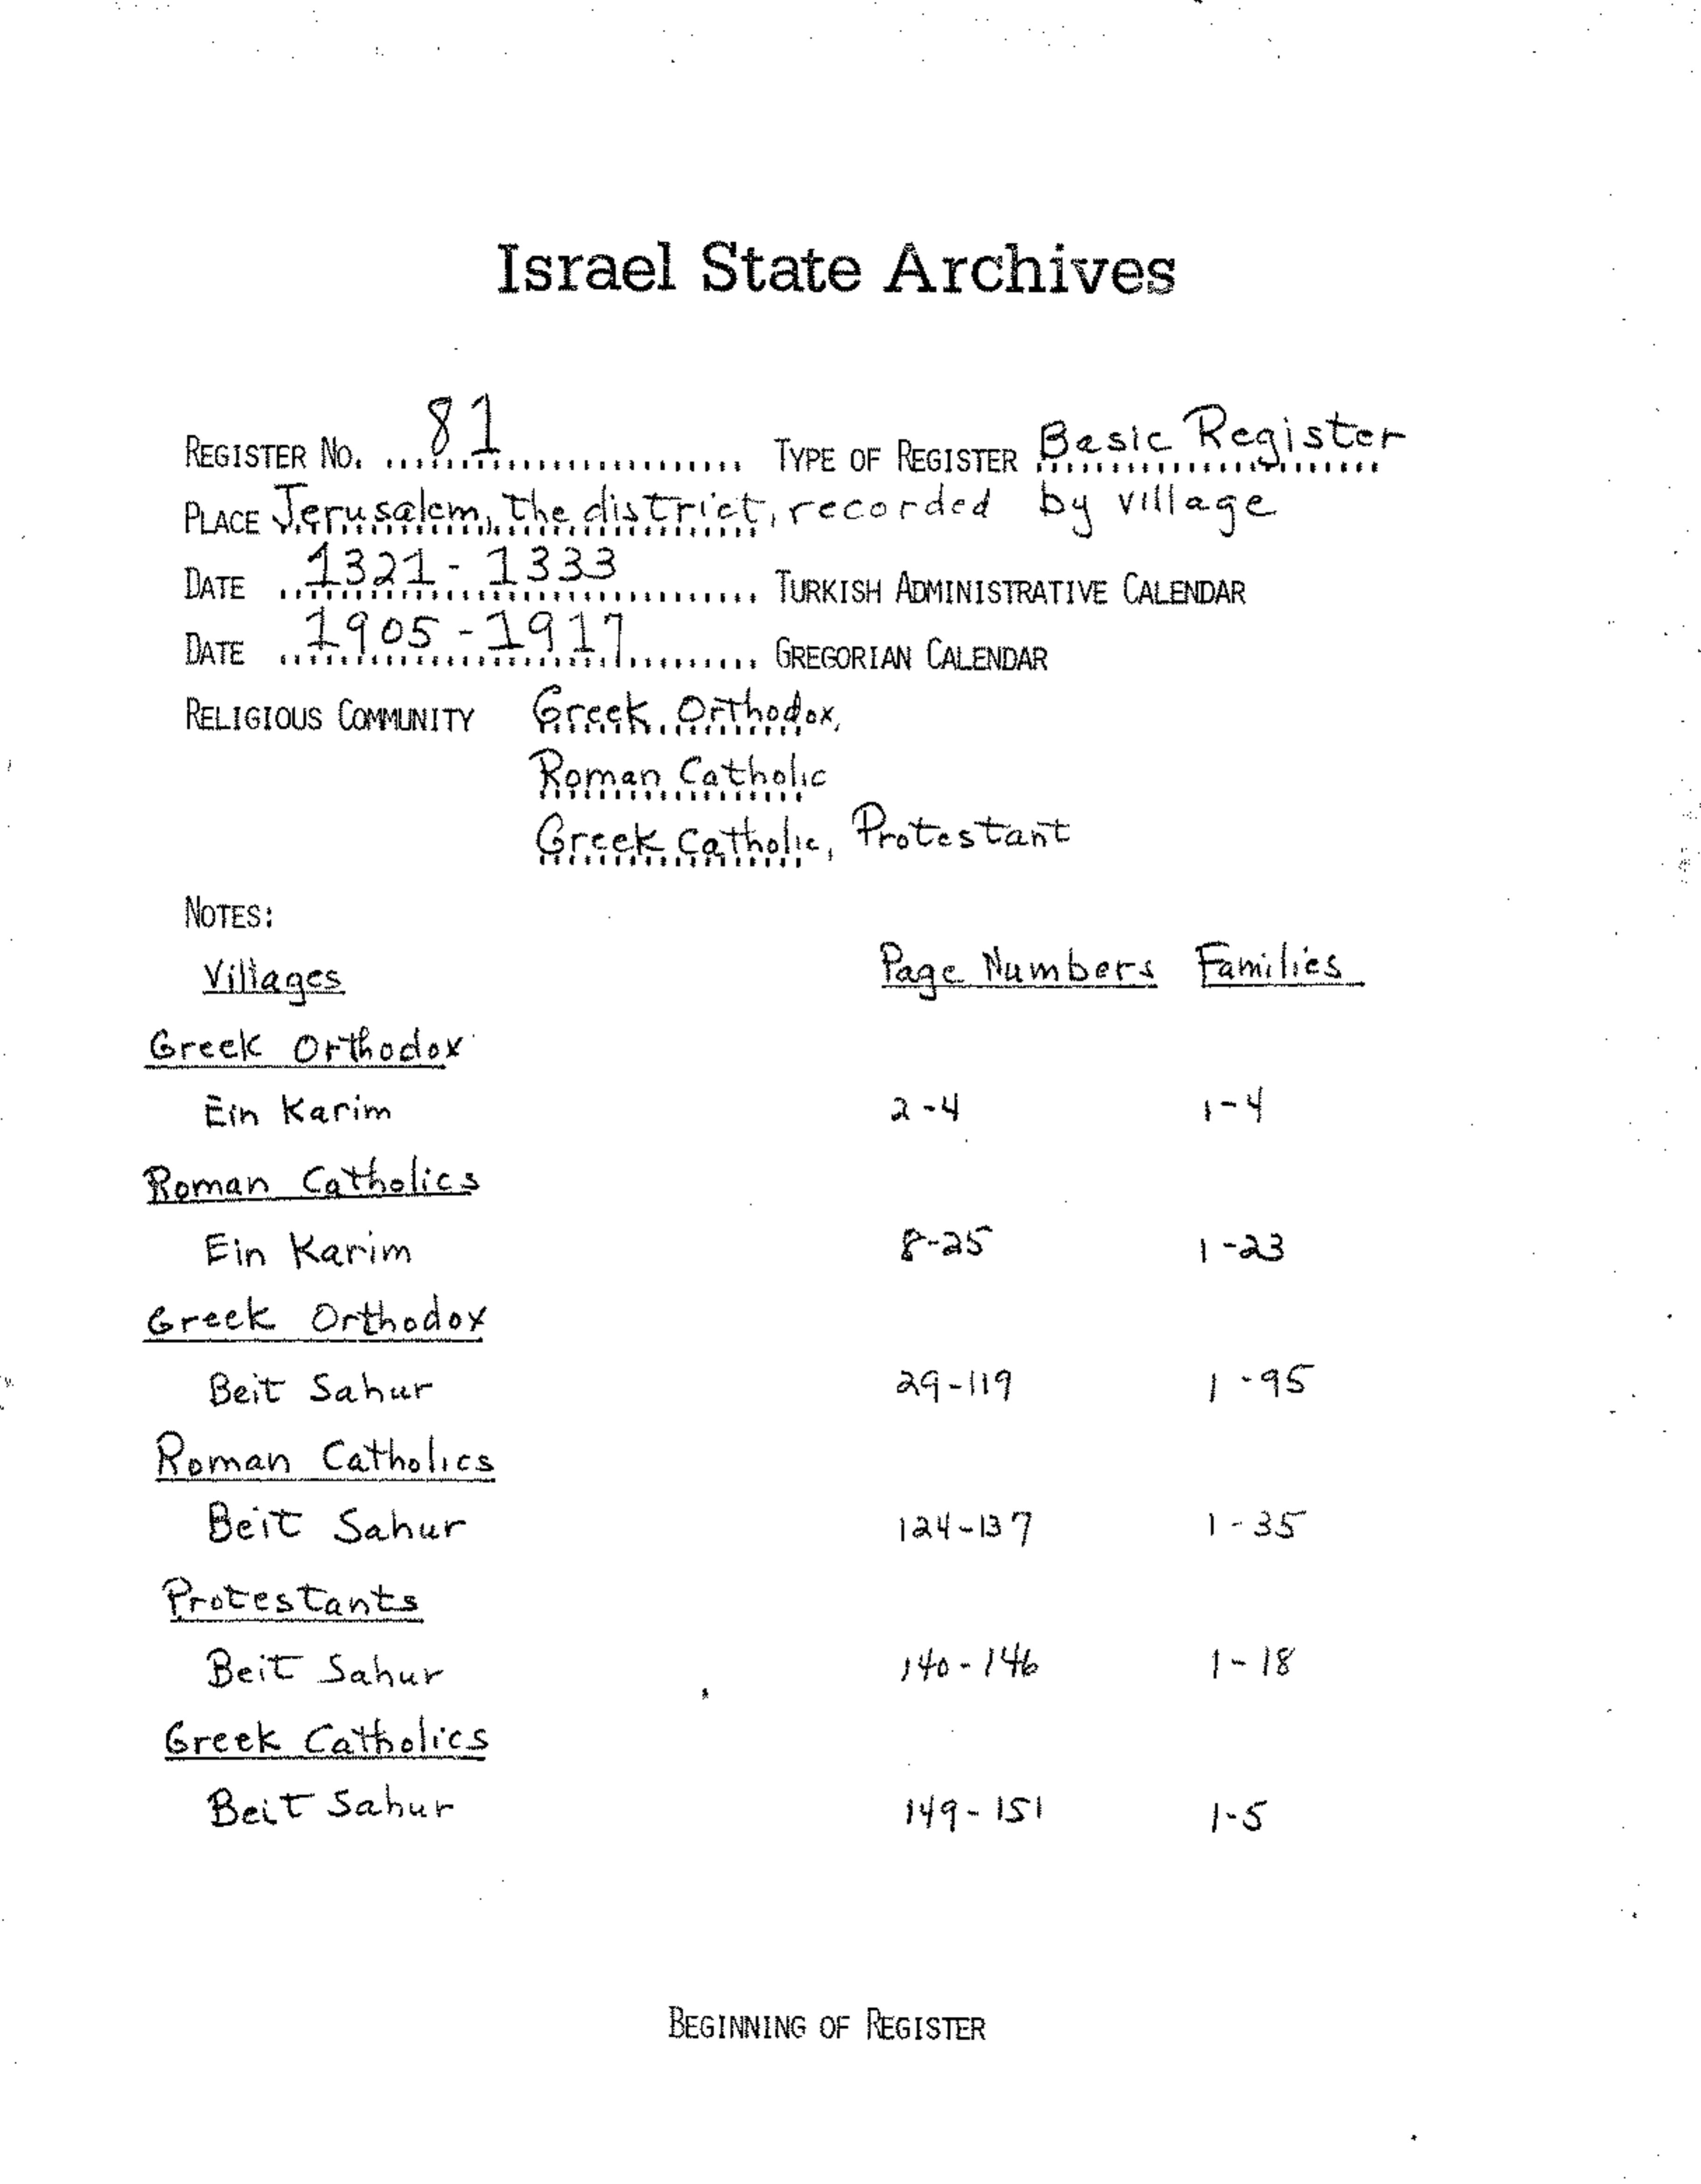 Israel State Archives
REGISTER NO. 81 TYPE OF REGISTER Basic Register
PLACE Jerusalem, the district, recorded by village
DATE 1321-1333 TURKISH ADMINISTRATIVE CALENDAR
DATE 1905-1917 GREGORIAN CALENDAR
RELIGIOUS COMMUNITY Greek Orthodox,
Roman Catholic
Greek Catholic, Protestant
NOTES:
Villages Page Numbers Families
Greek Orthodox
Ein Karim 2-4 1-4
Roman Catholics
Ein Karim 8-25 1-23
Greek Orthodox
Beit Sahur 29-119 1-95
Roman Catholics
Beit Sahur 124-137 1-35
Protestants
Beit Sahur 140-146 1-18
Greek Catholics
Beit Sahur 149-151 1-5
BEGINNING OF REGISTER